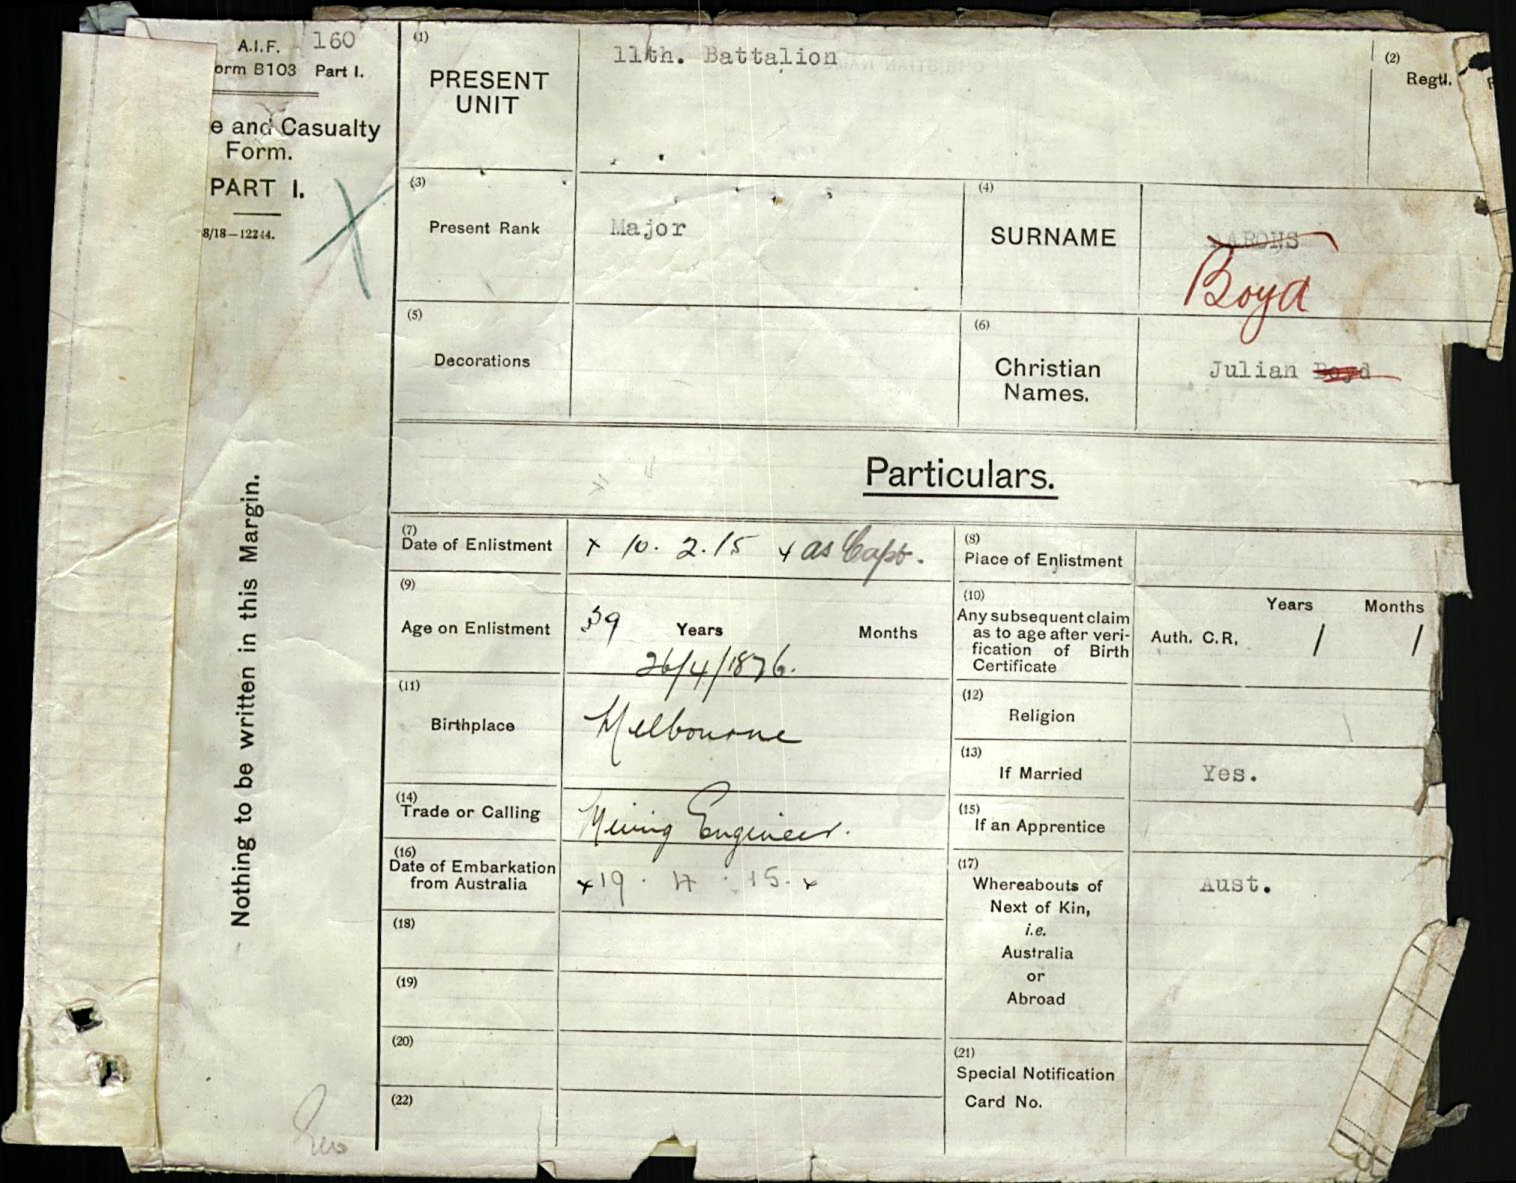 A.I.F. 160
orm B103 Part I.
e and Casualty
Form.
PART I.
8/18—12244.
Nothing to be written in this Margin.
(1)
PRESENT
UNIT
11th. Battalion
(2)
Regtl.
(3)
Present Rank
Major
(4)
SURNAME
AARONS
Boyd
(5)
Decorations
(6)
Christian
Names.
Julian Boyd
Particulars.
(7)
Date of Enlistment
x 10. 2. 15 x as Capt.
(8)
Place of Enlistment
(9)
Age on Enlistment
39 Years Months
26/4/1876.
(10)
Any subsequent claim
as to age after veri-
fication of Birth
Certificate
Years Months
Auth. C.R. / /
(11)
Birthplace
Melbourne
(12)
Religion
(13)
If Married
Yes.
(14)
Trade or Calling
Mining Engineer.
(15)
If an Apprentice
(16)
Date of Embarkation
from Australia
x 19 . 4 . 15. x
(17)
Whereabouts of
Next of Kin,
i.e.
Australia
or
Abroad
Aust.
(18)
(19)
(20)
(21)
Special Notification
Card No.
(22)